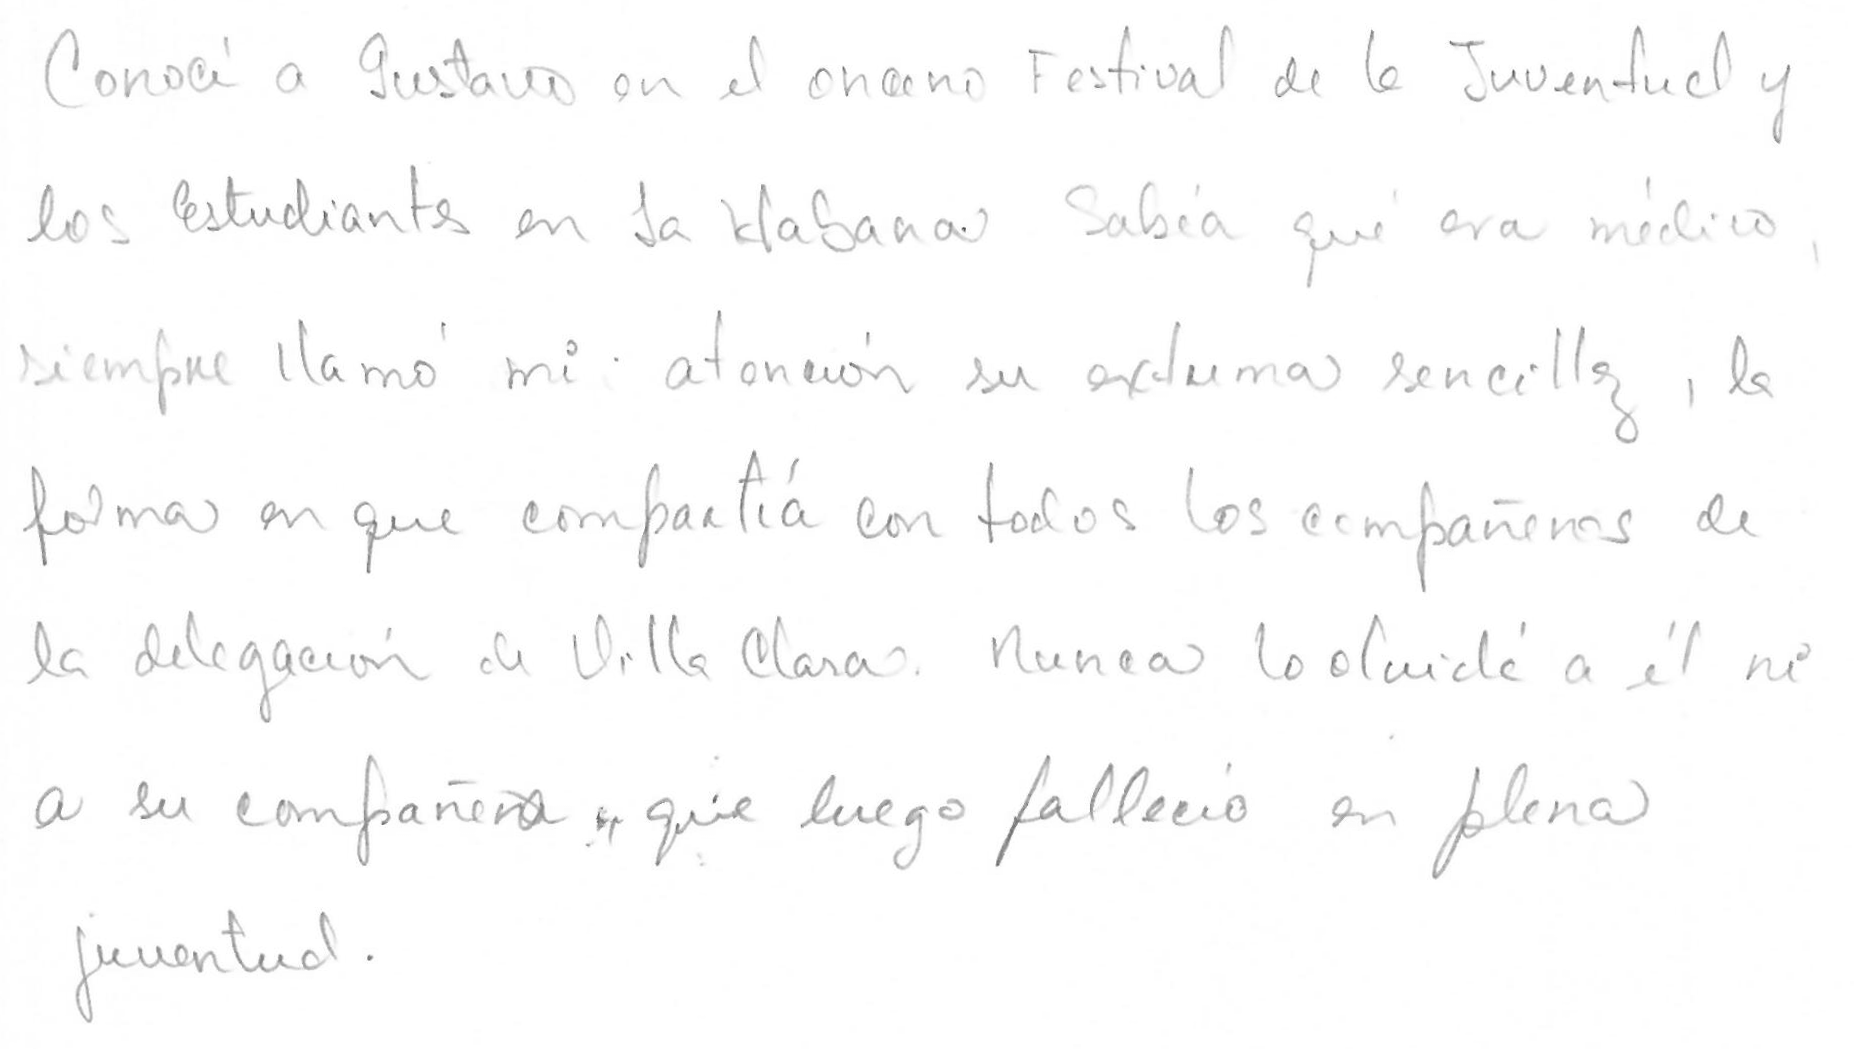 Conocí a Gustavo en el onceno Festival de la Juventud y
los Estudiantes en La Habana Sabía qué era médico,
siempre llamó mi atención su extrema sencillez, la
forma en que compartía con todos los compañeros de
la delegación de Villa Clara. Nunca lo olvidé a él ni
a su compañera, que luego falleció en plena
juventud.